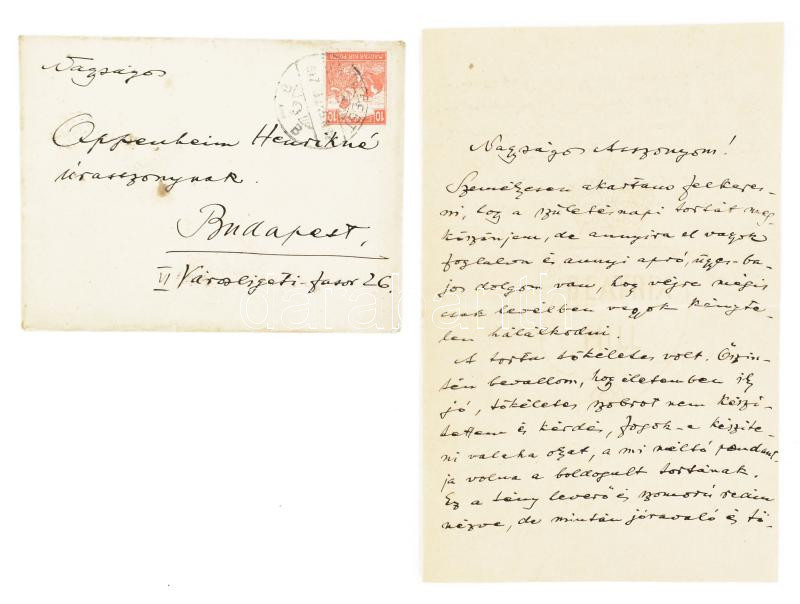 Nagyságos
Oppenheim Henrikné
úrasszonynak.
Budapest,
VI Városligeti-fasor 26.
MAGYAR KIR. POSTA
10 10
Nagyságos Asszonyom!
Személyesen akartam felkeres-
ni, hogy a születésnapi tortát meg-
köszönjem, de annyira el vagyok
foglalva és annyi apró, ügyes-ba-
jos dolgom van, hogy végre mégis
csak levélben vagyok kényte-
len hálálkodni.
A torta tökéletes volt. Őszin-
tén bevallom, hogy életemben ily
jó, tökéletes szobrot nem készí-
tettem és kérdés, fogok-e készíte-
ni valaha olyat, a mi méltó pendant-
ja volna a boldogult tortának.
Ez a tény leverő és szomorú reám
nézve, de miután jóravaló és tö-
darabanth